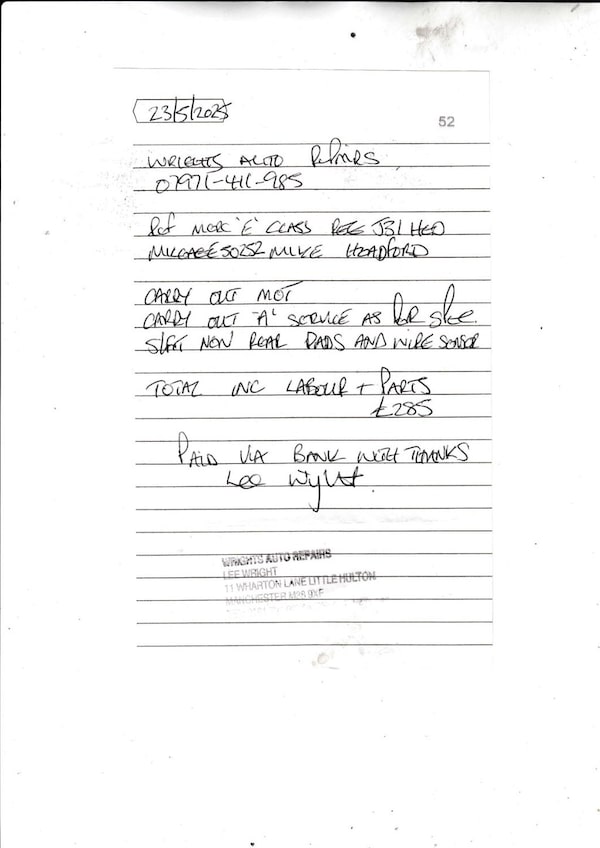 23/5/2025
52
WRIGHTS AUTO REPAIRS
07971-411-985
Ref MERC 'E' CLASS REG J31 HED
MILEAGE 50252 MIKE HEADFORD
CARRY OUT MOT
CARRY OUT 'A' SERVICE AS PER
NEW REAR PADS AND WIRE SENSOR
TOTAL INC LABOUR + PARTS
£285
PAID VIA BANK WITH THANKS
Lee Wright
WRIGHTS AUTO REPAIRS
LEE WRIGHT
11 WHARTON LANE LITTLE HULTON
MANCHESTER M38 9XF